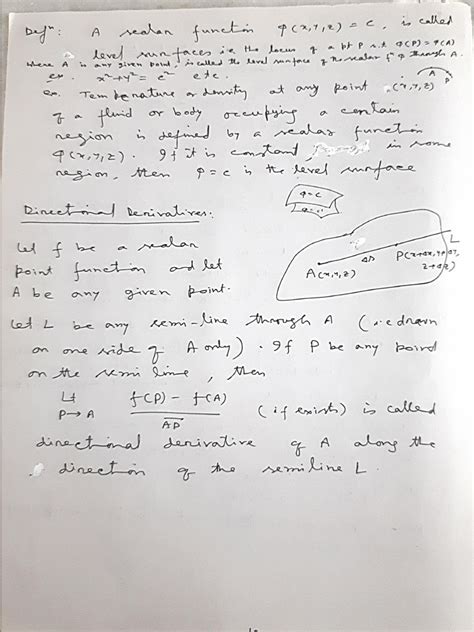 Defⁿ: A scalar function φ(x,y,z) = c, is called
level surfaces i.e. the locus of a pt P s.t. φ(P) = φ(A)
where A is any given point, is called the level surface of the scalar fⁿ φ through A.
ex. x²+y² = c² etc.
ex. Temperature or density at any point (x,y,z)
A P
of a fluid or body occupying a certain
region is defined by a scalar function
φ(x,y,z). If it is constant, in some
region, then φ=c is the level surface
φ=c
Directional Derivatives:
Let f be a scalar
point function and let
A be any given point.
A(x,y,z) Δs P(x+Δx, y+Δy, z+Δz) L
Let L be any semi-line through A (i.e drawn
on one side of A only). If P be any point
on the semi line, then
Lt P→A f(P) - f(A) / AP (if exists) is called
directional derivative of A along the
direction of the semiline L.